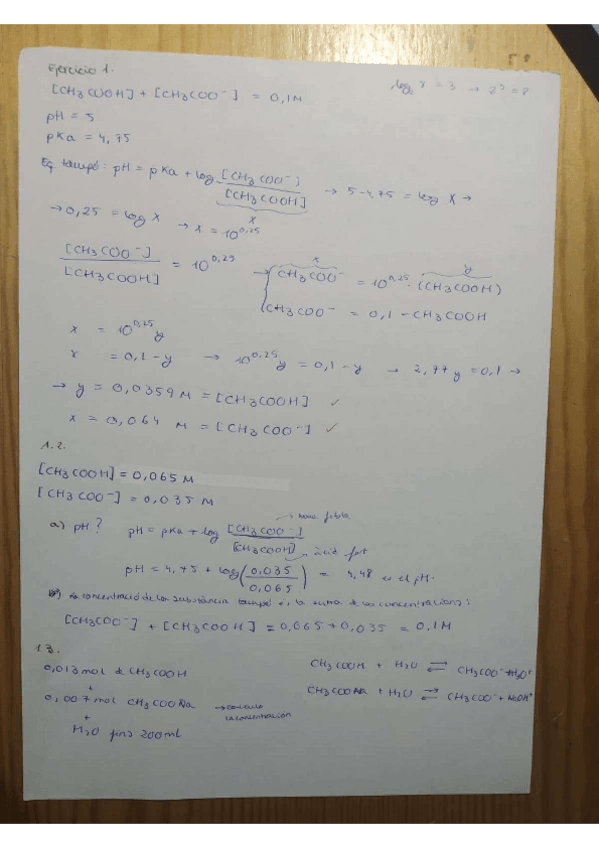 Ejercicio 1.
log₂ 8 = 3 → 2³ = 8
[CH₃COOH] + [CH₃COO⁻] = 0,1M
pH = 5
pKa = 4,75
Eq tampó: pH = pKa + log [CH₃COO⁻] / [CH₃COOH] → 5-4,75 = log x →
x
→ 0,25 = log x → x = 10^0,25
[CH₃COO⁻] / [CH₃COOH] = 10^0,25 → { CH₃COO⁻ = 10^0,25 · (CH₃COOH)
x y
CH₃COO⁻ = 0,1 - CH₃COOH
x = 10^0,25 y
x = 0,1 - y → 10^0,25 y = 0,1 - y → 2,77 y = 0,1 →
→ y = 0,0359 M = [CH₃COOH] ✓
x = 0,064 M = [CH₃COO⁻] ✓
1.2.
[CH₃COOH] = 0,065 M
[CH₃COO⁻] = 0,035 M
a) pH? pH = pKa + log [CH₃COO⁻] / [CH₃COOH]
pH = 4,75 + log(0,035 / 0,065) = 4,48 es el pH.
b) concentració de la substància tampó és la suma de les concentracions:
[CH₃COO⁻] + [CH₃COOH] = 0,065 + 0,035 = 0,1M
1.3.
0,013 mol de CH₃COOH
+
0,007 mol CH₃COONa → calculo la concentración
+
H₂O fins 200mL
CH₃COOH + H₂O ⇄ CH₃COO⁻ + H₃O⁺
CH₃COONa + H₂O ⇄ CH₃COO⁻ +